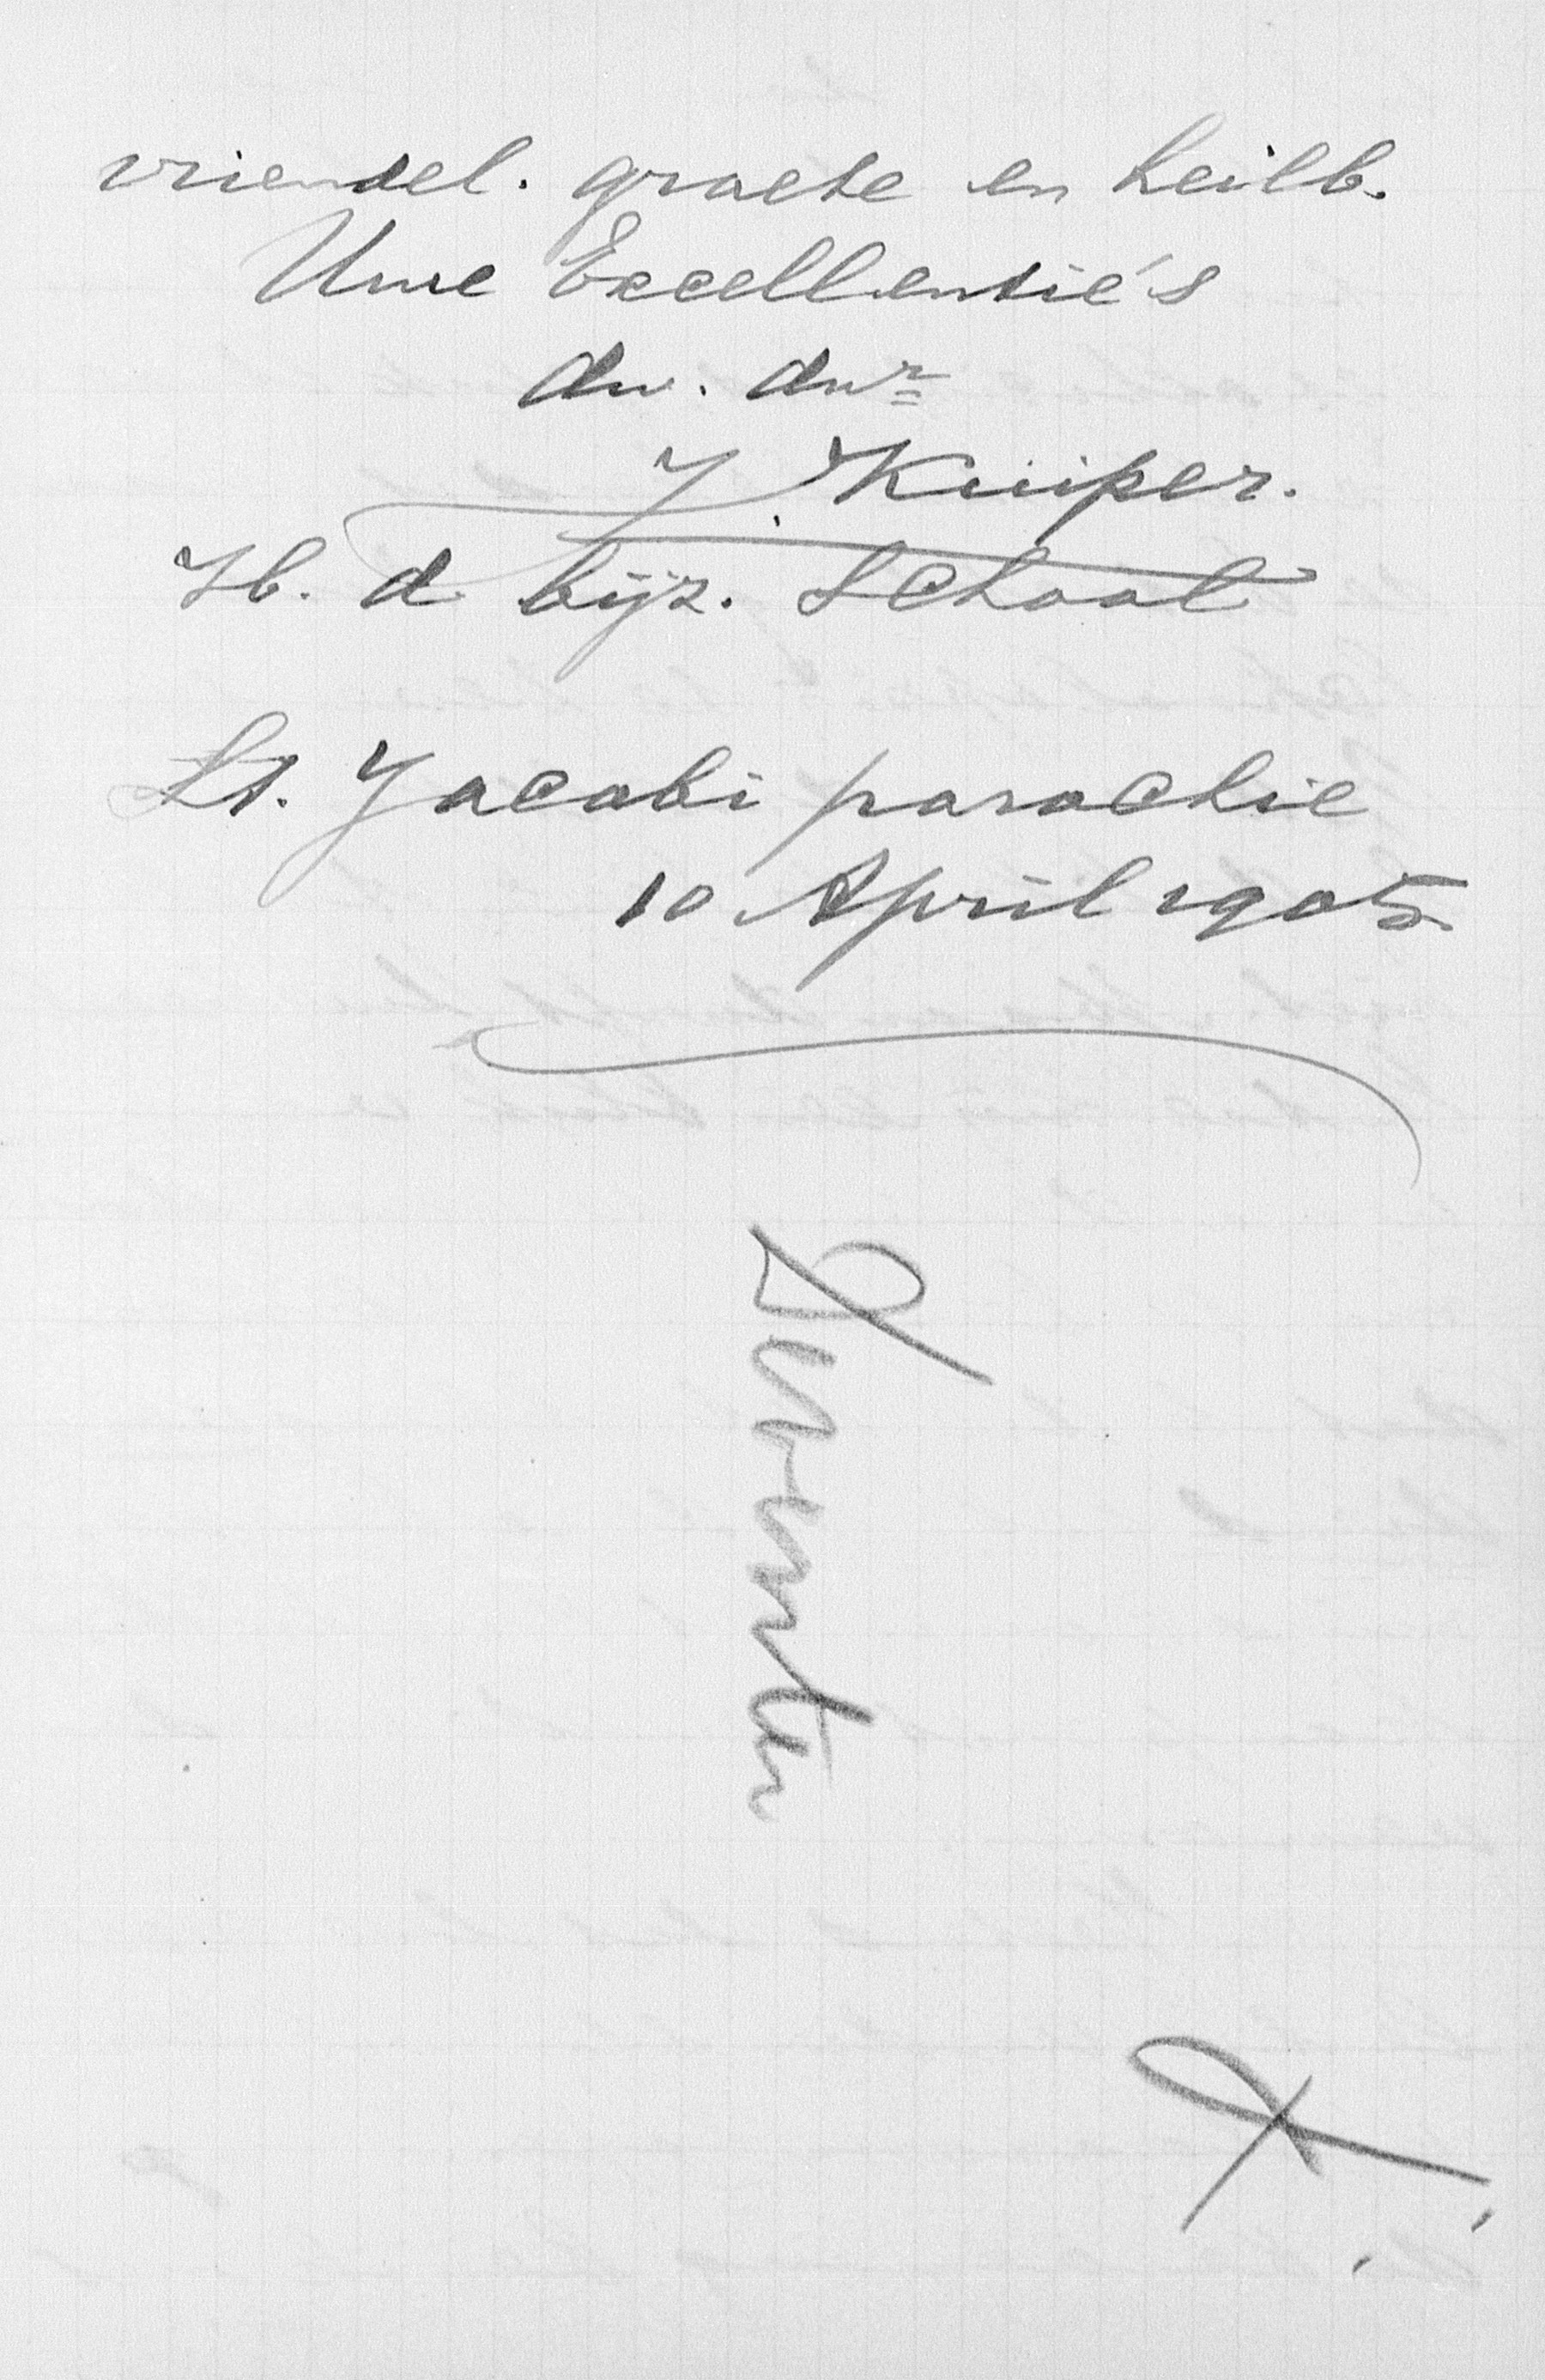 vriendel. groete en heilb.
Uwe Excellentie's
dw. dwr
J. Kuiper.
Hb. d bijz. School
St. Jacobi parochie
10 April 1905.
Deventer